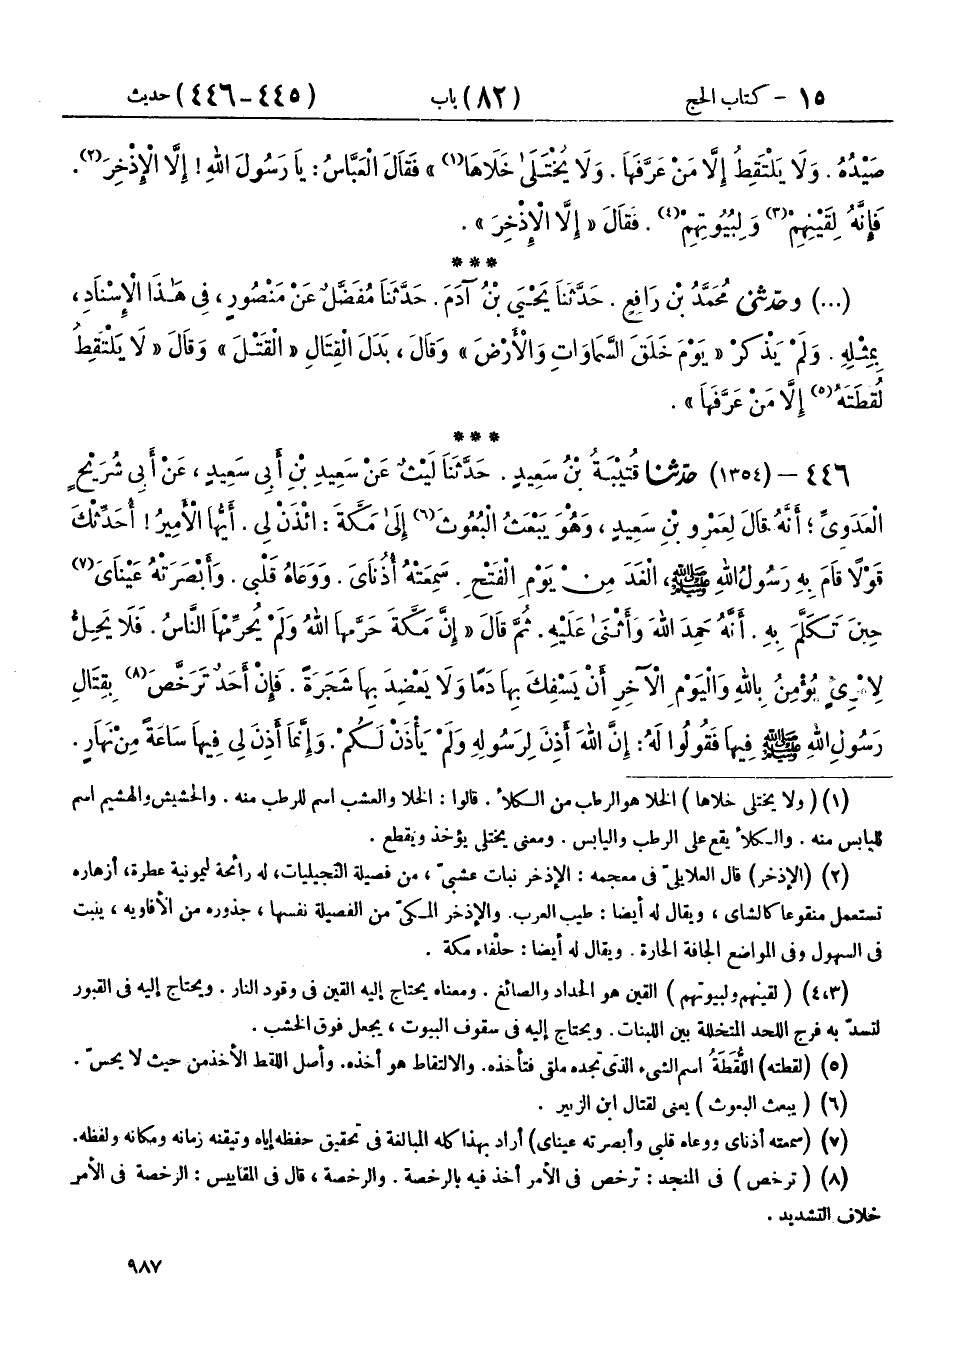 ١٥ - كتاب الحج (٨٢) باب (٤٤٥-٤٤٦) حديث
صَيْدُهُ . وَلَا يَلْتَقِطُ إِلَّا مَنْ عَرَّفَهَا . وَلَا يُخْتَلَىٰ خَلَاهَا(١) » فَقَالَ الْعَبَّاسُ : يَا رَسُولَ اللهِ ! إِلَّا الْإِذْخِرَ(٢) .
فَإِنَّهُ لِقَيْنِهِمْ(٣) وَلِبُيُوتِهِمْ(٤) . فَقَالَ « إِلَّا الْإِذْخِرَ » .
***
(...) وحدثني مُحَمَّدُ بْنُ رَافِعٍ . حَدَّثَنَا يَحْيَىٰ بْنُ آدَمَ . حَدَّثَنَا مُفَضَّلٌ عَنْ مَنْصُورٍ ، فِي هَٰذَا الْإِسْنَادِ ،
بِمِثْلِهِ . وَلَمْ يَذْكُرْ « يَوْمَ خَلَقَ السَّمَاوَاتِ وَالْأَرْضَ » وَقَالَ ، بَدَلَ الْقِتَالِ « الْقَتْلَ » وَقَالَ « لَا يَلْتَقِطُ
لُقَطَتَهُ(٥) إِلَّا مَنْ عَرَّفَهَا » .
***
٤٤٦ - (١٣٥٤) حدثنا قُتَيْبَةُ بْنُ سَعِيدٍ . حَدَّثَنَا لَيْثٌ عَنْ سَعِيدِ بْنِ أَبِي سَعِيدٍ ، عَنْ أَبِي شُرَيْحٍ
الْعَدَوِيِّ ؛ أَنَّهُ قَالَ لِعَمْرِو بْنِ سَعِيدٍ ، وَهُوَ يَبْعَثُ الْبُعُوثَ(٦) إِلَىٰ مَكَّةَ : ائْذَنْ لِي . أَيُّهَا الْأَمِيرُ ! أُحَدِّثْكَ
قَوْلًا قَامَ بِهِ رَسُولُ اللهِ ﷺ ، الْغَدَ مِنْ يَوْمِ الْفَتْحِ . سَمِعَتْهُ أُذُنَايَ . وَوَعَاهُ قَلْبِي . وَأَبْصَرَتْهُ عَيْنَايَ(٧)
حِينَ تَكَلَّمَ بِهِ . أَنَّهُ حَمِدَ اللهَ وَأَثْنَىٰ عَلَيْهِ . ثُمَّ قَالَ « إِنَّ مَكَّةَ حَرَّمَهَا اللهُ وَلَمْ يُحَرِّمْهَا النَّاسُ . فَلَا يَحِلُّ
لِامْرِئٍ يُؤْمِنُ بِاللهِ وَالْيَوْمِ الْآخِرِ أَنْ يَسْفِكَ بِهَا دَمًا وَلَا يَعْضِدَ بِهَا شَجَرَةً . فَإِنْ أَحَدٌ تَرَخَّصَ(٨) بِقِتَالِ
رَسُولِ اللهِ ﷺ فِيهَا فَقُولُوا لَهُ : إِنَّ اللهَ أَذِنَ لِرَسُولِهِ وَلَمْ يَأْذَنْ لَكُمْ . وَإِنَّمَا أَذِنَ لِي فِيهَا سَاعَةً مِنْ نَهَارٍ .
(١) ( ولا يختلى خلاها ) الخلا هو الرطب من الكلأ . قالوا : الخلا والعشب اسم للرطب منه . والحشيش والهشيم اسم
لليابس منه . والكلأ يقع على الرطب واليابس . ومعنى يختلى يؤخذ ويقطع .
(٢) (الإذخر) قال العلايليّ في معجمه : الإذخر نبات عشبيّ ، من فصيلة النجيليات ، له رائحة ليمونية عطرة ، أزهاره
تستعمل منقوعا كالشاى ، ويقال له أيضا : طيب العرب . والإذخر المكيّ من الفصيلة نفسها ، جذوره من الأفاويه ، ينبت
في السهول وفى المواضع الجافة الحارة . ويقال له أيضا : حلْفاء مكة .
(٤،٣) ( لقينهم ولبيوتهم ) القين هو الحداد والصائغ . ومعناه يحتاج إليه القين في وقود النار . ويحتاج إليه في القبور
لتسدّ به فرج اللحد المتخللة بين اللبنات . ويحتاج إليه في سقوف البيوت ، يجعل فوق الخشب .
(٥) (لقطته) اللُّقَطَةُ اسم الشيء الذى تجده ملقى فتأخذه . والالتقاط هو أخذه . وأصل اللقط الأخذ من حيث لا يحسّ .
(٦) ( يبعث البعوث ) يعنى لقتال ابن الزبير .
(٧) (سمعته أذناى ووعاه قلبي وأبصرته عيناى) أراد بهذا كله المبالغة في تحقيق حفظه إياه وتيقنه زمانه ومكانه ولفظه .
(٨) ( ترخص ) في المنجد : ترخص في الأمر أخذ فيه بالرخصة . والرخصة ، قال في المقاييس : الرخصة في الأمر
خلاف التشديد .
٩٨٧